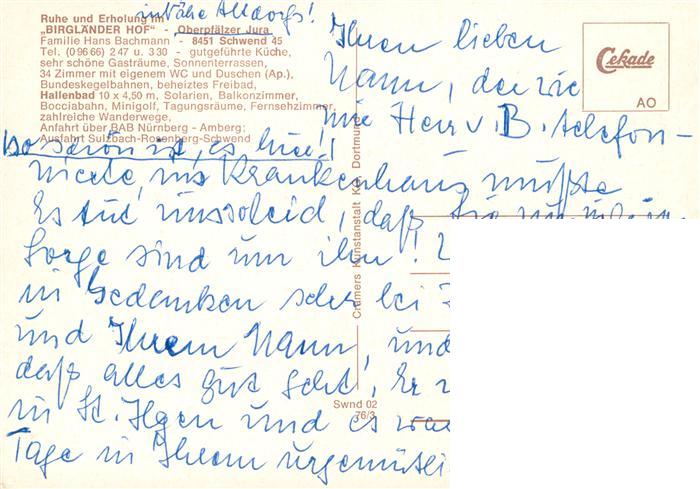 in Nähe Altdorfs!
Ruhe und Erholung im
„BIRGLÄNDER HOF" - Oberpfälzer Jura
Familie Hans Bachmann - 8451 Schwend 45
Tel. (0 96 66) 2 47 u. 3 30 - gutgeführte Küche,
sehr schöne Gasträume, Sonnenterrassen,
34 Zimmer mit eigenem WC und Duschen (Ap.),
Bundeskegelbahnen, beheiztes Freibad,
Hallenbad 10 x 4,50 m, Solarien, Balkonzimmer,
Bocciabahn, Minigolf, Tagungsräume, Fernsehzimmer,
zahlreiche Wanderwege,
Anfahrt über BAB Nürnberg - Amberg:
Ausfahrt Sulzbach-Rosenberg-Schwend
so schön ist es hier!
Cekade
AO
Ihren lieben
Mann, der wie
mir Herr v. B. telefon-
ierte, ins Krankenhaus mußte
Es tut uns so leid, daß Sie nun in
Sorge sind um ihn!
in Gedanken sehr bei
und Ihrem Mann, und
daß alles gut geht, Er
in St. Ilgen und es war
Tage in Ihrem urgemütli
Cramers Kunstanstalt KG, Dortmund
Swnd 02
76/3